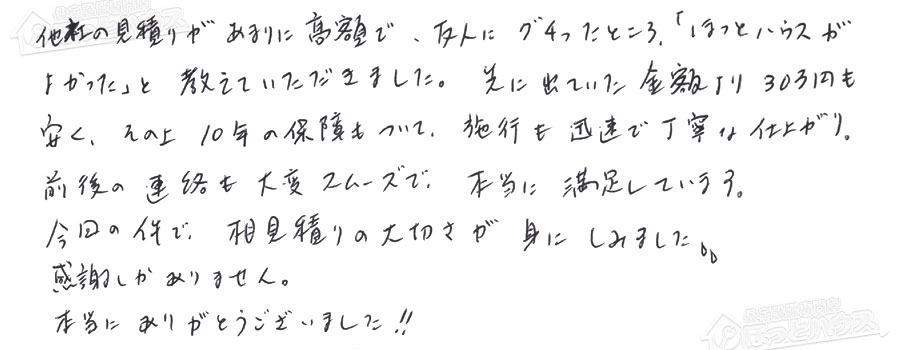 他社の見積りがあまりに高額で、友人にグチったところ、「ほっとハウスが
よかった」と教えていただきました。先に出ていた金額より30万円も
安く、その上10年の保障もついて、施行も迅速で丁寧な仕上がり。
前後の連絡も大変スムーズで、本当に満足しています。
今回の件で、相見積りの大切さが身にしみました。
感謝しかありません。
本当にありがとうございました!!
ほっとハウス